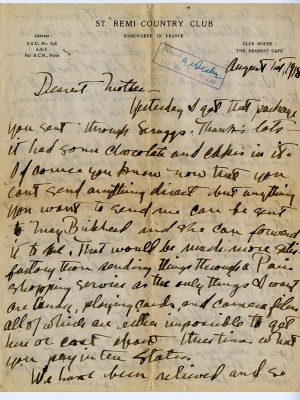 ST. REMI COUNTRY CLUB
SOMEWHERE IN FRANCE
A.E.F.
CLUB HOUSE:
THE NEAREST CAFÉ
August 1st, 1918
Dearest Mother—
Yesterday I got that package
you sent through Scraggs. Thanks lots—
it had some chocolate and cakes in it.
Of course you know now that you
cant send anything direct but anything
you want to send me can be sent
to May Birkhead and she can forward
it to me. That would be much more satis-
factory than sending things through a Paris
shopping service as the only things I want
are candy, playing cards, and camera films
all of which are either impossible to get
here or cost about three times what
you pay in ten States.
We have been relieved and are